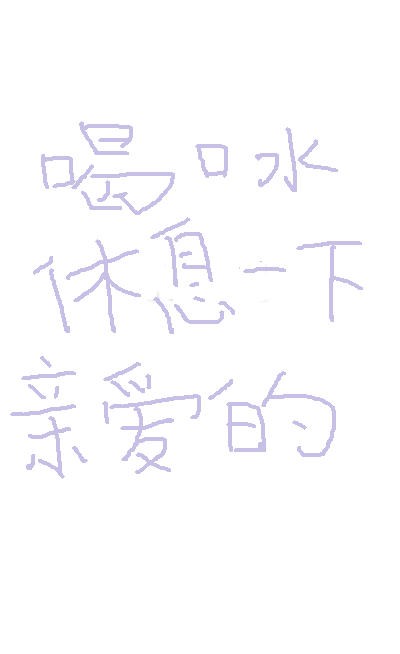 喝口水
休息一下
亲爱的